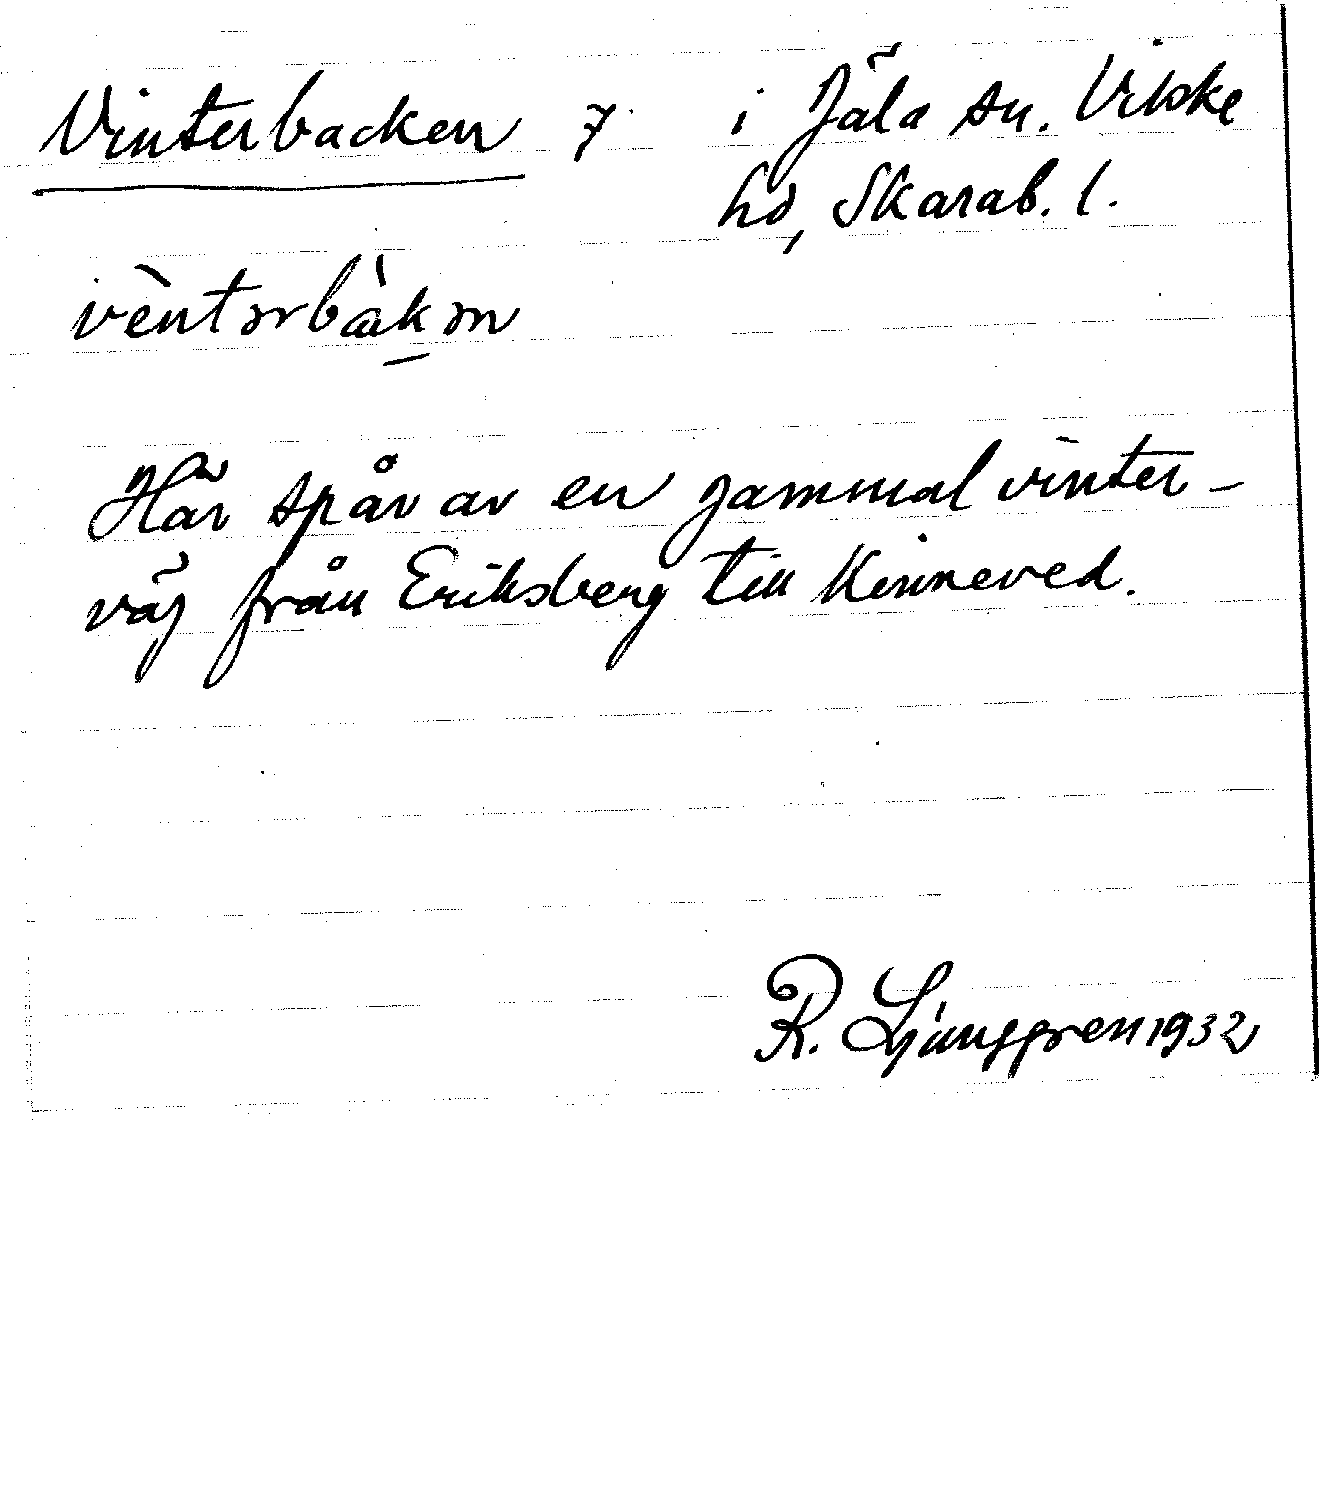 Vinterbacken 7 i Jäla sn. Vilske
hd, Skarab. l.
vènterbàken
Här spår av en gammal vinter-
väg från Eriksberg till Kinneved.
R. Ljunggren 1932